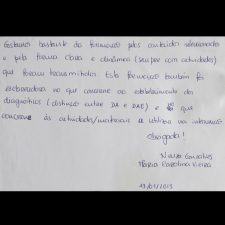 Gostamos bastante da formação pelos conteúdos selecionados
e pela forma clara e dinâmica (sempre com actividades)
que foram transmitidos. Esta formação também foi
esclarecedora no que concerne ao estabelecimento do
diagnóstico (distinção entre DA e DAE) e no que
concerne às actividades/materiais a utilizar na intervenção
Obrigada!
Neuza Gonçalves
Maria Carolina Vieira
19/01/2013